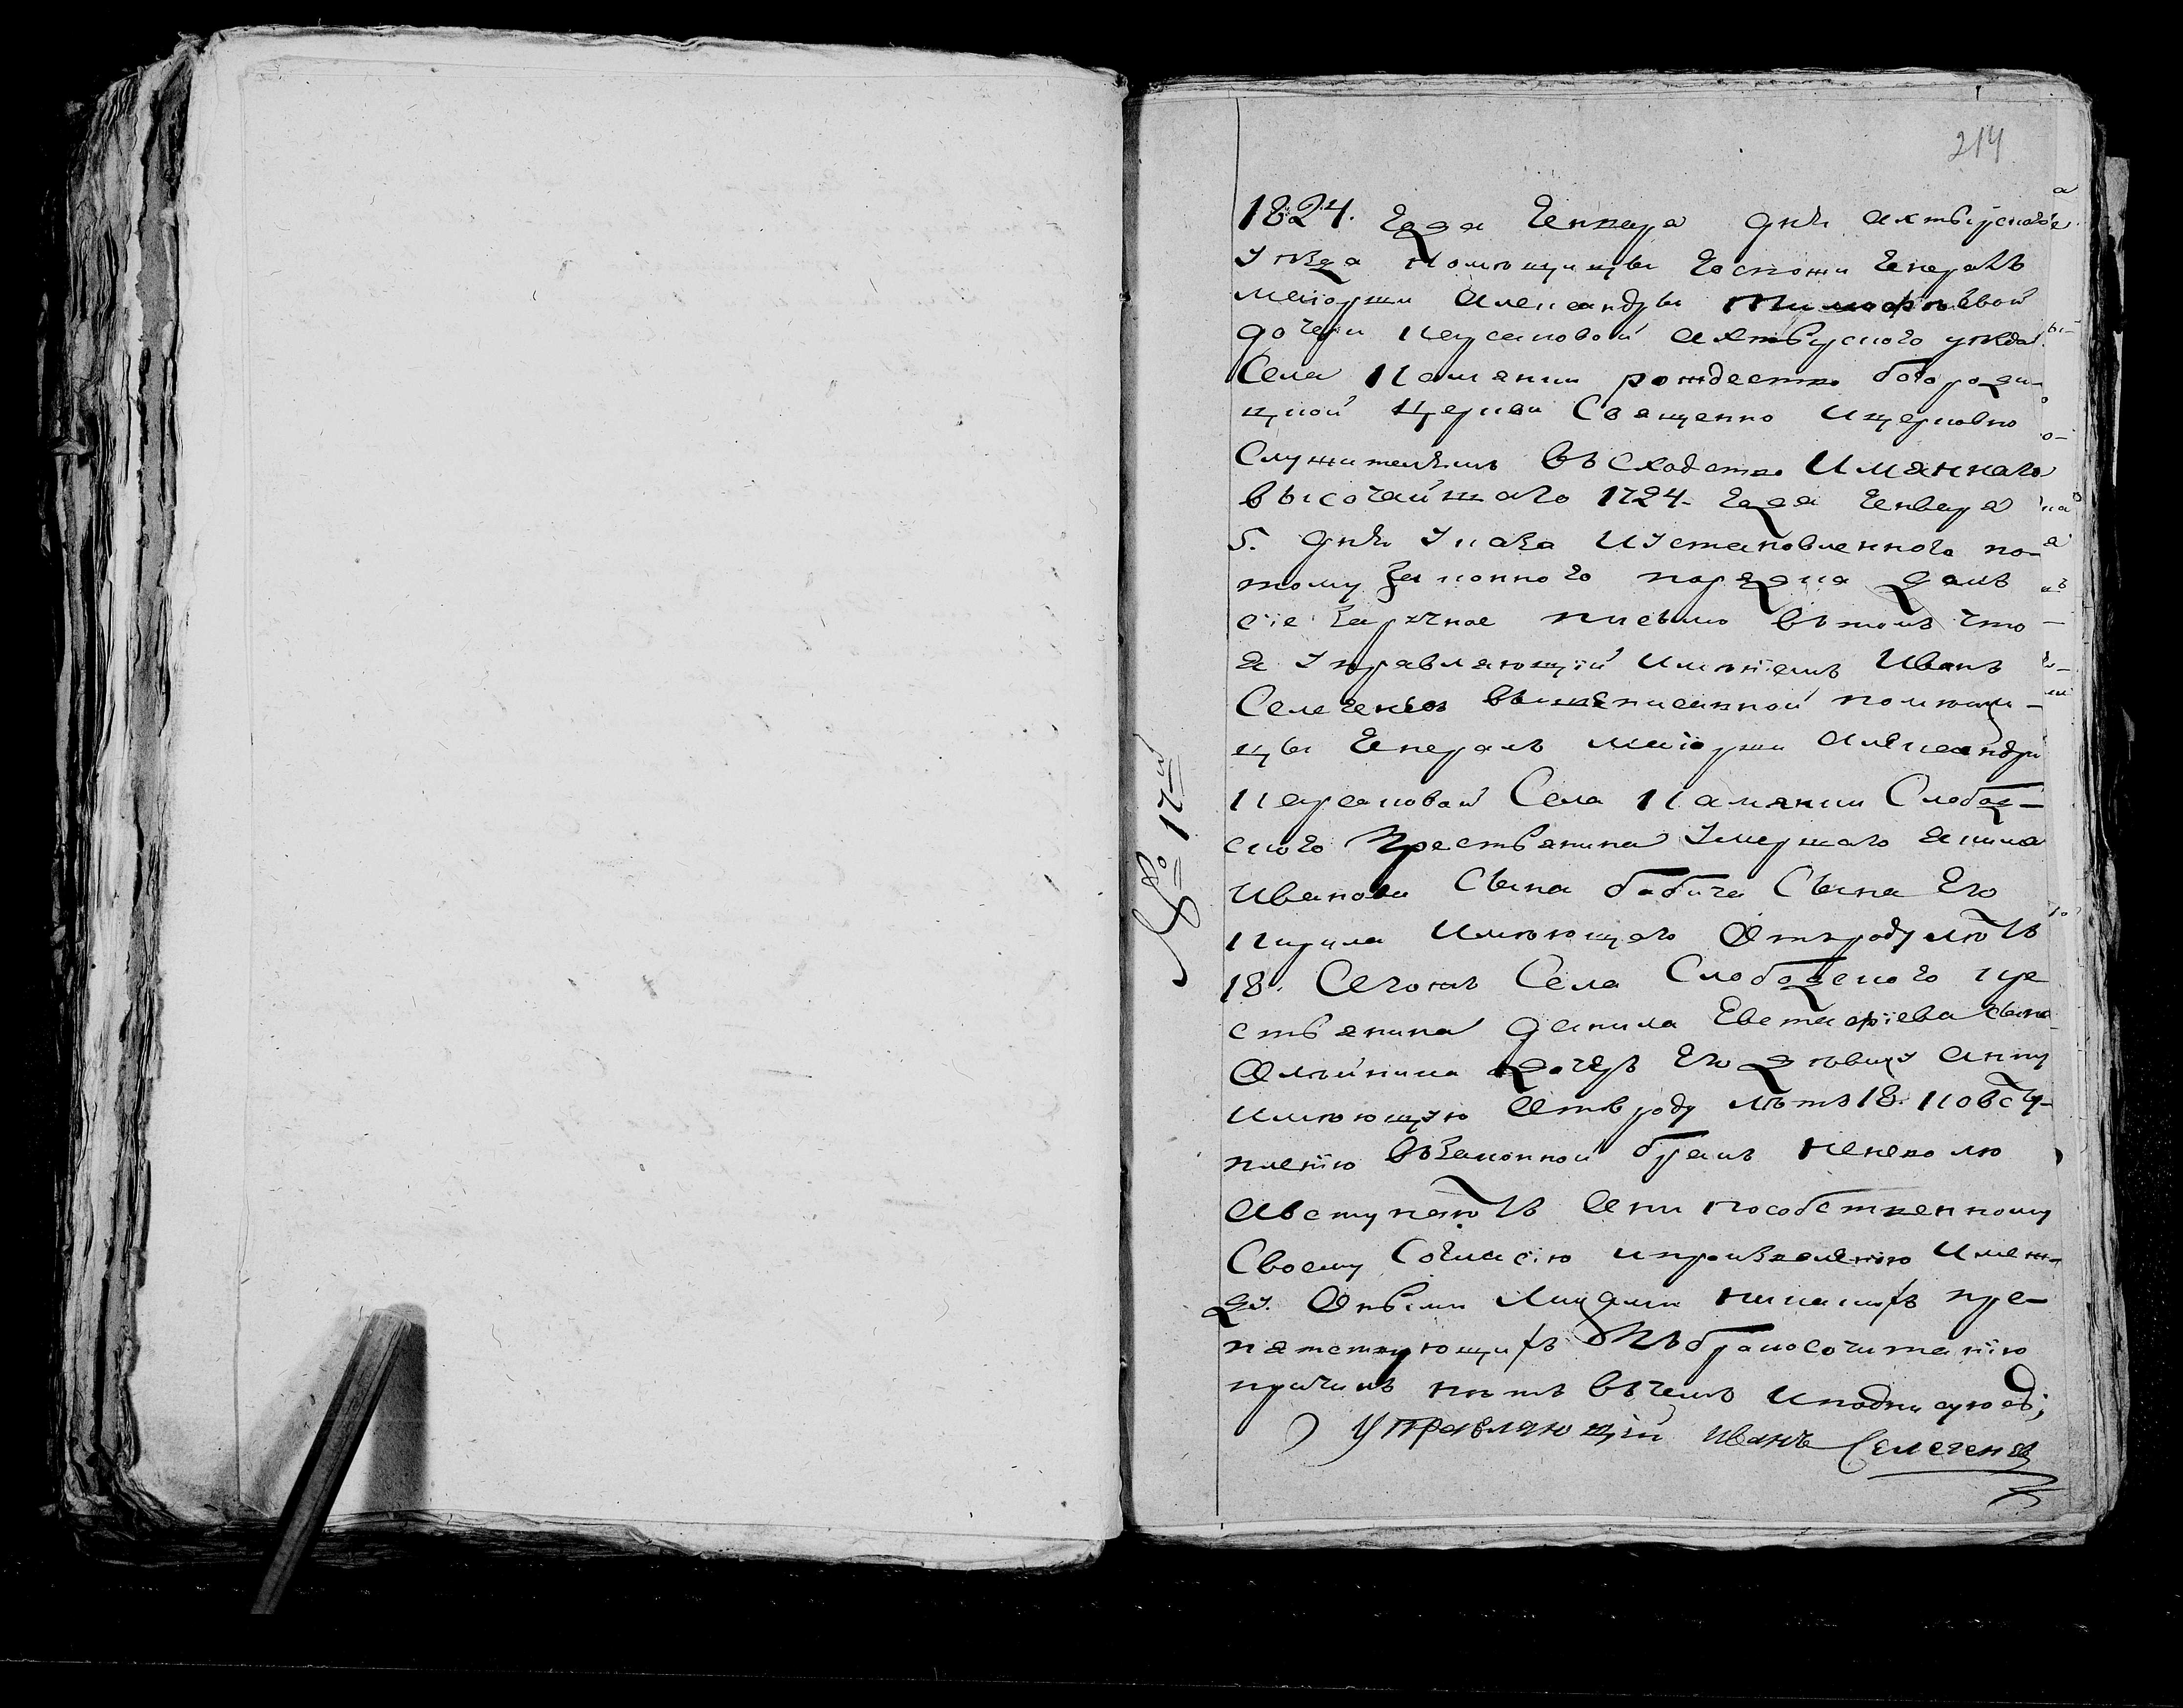 214
1824. года Генвара дня ахтырскаго
Уѣзда помѣщицы Госпожи Генералъ
маіорши Александры Тимофѣевой
дочери Курсаковой ахтырскаго уѣзда
Села Камянки рождество богороди-
цкой Церкви Священно Ицерковно
Служителямъ въ Сходство Имяннаго
высочайшаго 1724. года Генваря
5. дня Указа ИУстановленнаго по-
тому Законного порядка далъ
сіе Заручное письмо втомъ что
я Управляющій Имѣніемъ Иванъ
вышеписанной помѣщи-
цы Генералъ маіорши Александры
Карсаковой Села Камянки Слобод-
ского Крестьянина Умершаго якима
Иванова Сына бабича Сына Его
Кирила Имѣющего Отъроду лѣтъ
18. Сегожъ Села Слободского кре
стьянина данила Евстафіева сына
Олѣйника дочерь Его дѣвицу Анну
имѣющую Отъ роду лѣтъ 18. Ковсту-
пленію взаконной бракъ неневолю
Авступаютъ Они пособственному
Своему Согласію ипроизволенію Имеж-
ду Оными Лицами никакихъ пре-
пятствующихъ Къбракосочитанію
причинъ нѣтъ вчемъ Иподписуюсь;
Управляющій Иванъ
№ 17й